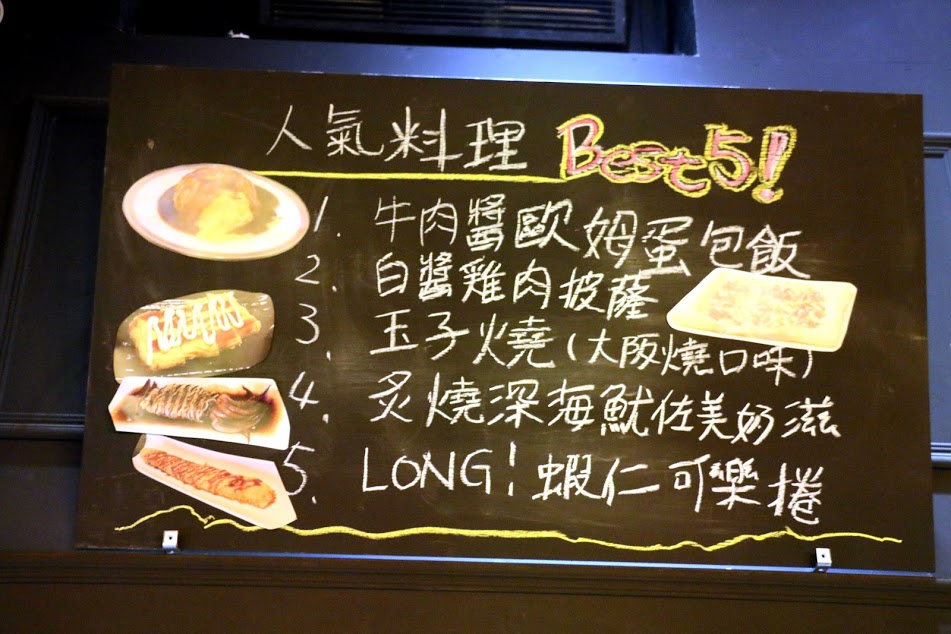 人氣料理 Best5!
1. 牛肉醬歐姆蛋包飯
2. 白醬雞肉披薩
3. 玉子燒(大阪燒口味)
4. 炙燒深海魷佐美奶滋
5. LONG! 蝦仁可樂捲